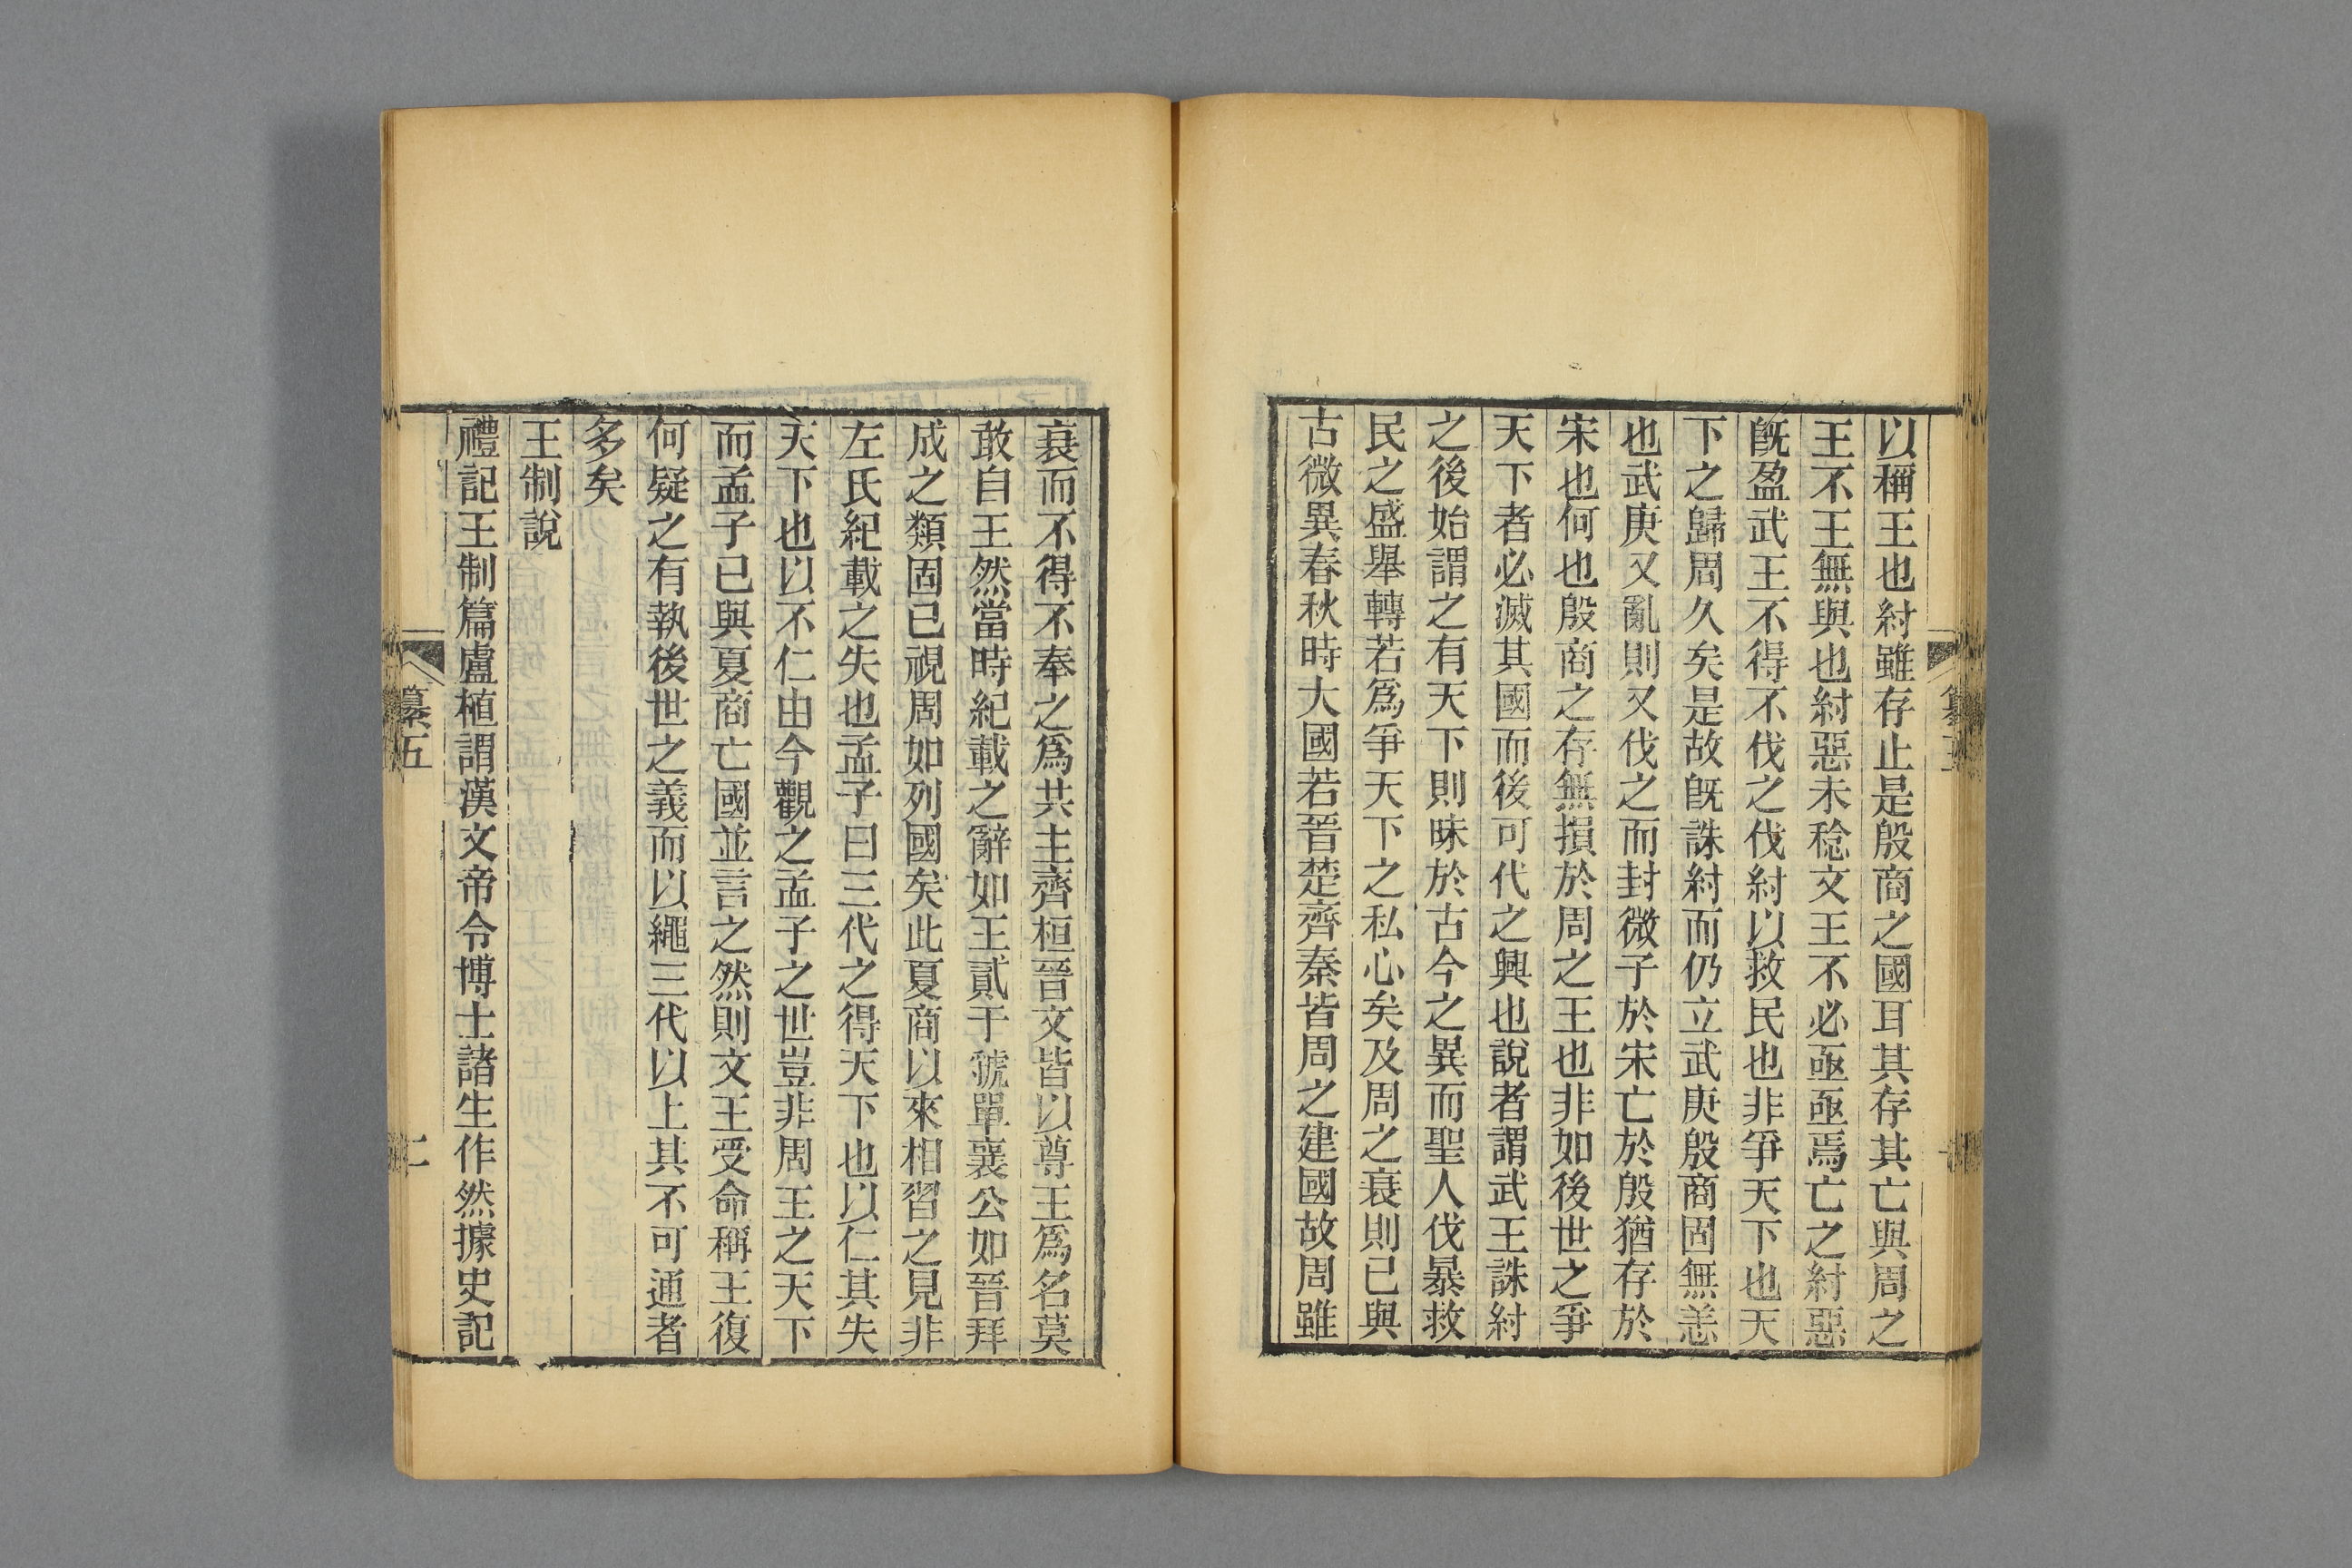 以稱王也紂雖存止是殷商之國耳其存其亡與周之
王不王無與也紂惡未稔文王不必亟亟焉亡之紂惡
旣盈武王不得不伐之伐紂以救民也非爭天下也天
下之歸周久矣是故旣誅紂而仍立武庚殷商固無恙
也武庚又亂則又伐之而封微子於宋亡於殷猶存於
宋也何也殷商之存無損於周之王也非如後世之爭
天下者必滅其國而後可代之興也說者謂武王誅紂
之後始謂之有天下則昧於古今之異而聖人伐暴救
民之盛舉轉若爲爭天下之私心矣及周之衰則已與
古微異春秋時大國若晉楚齊秦皆周之建國故周雖
衰而不得不奉之爲共主齊桓晉文皆以尊王爲名莫
敢自王然當時紀載之辭如王貳于虢單襄公如晉拜
成之類固已視周如列國矣此夏商以來相習之見非
左氏紀載之失也孟子曰三代之得天下也以仁其失
天下也以不仁由今觀之孟子之世豈非周王之天下
而孟子已與夏商亡國並言之然則文王受命稱王復
何疑之有執後世之義而以繩三代以上其不可通者
多矣
王制說
禮記王制篇盧植謂漢文帝令博士諸生作然據史記
纂五
二